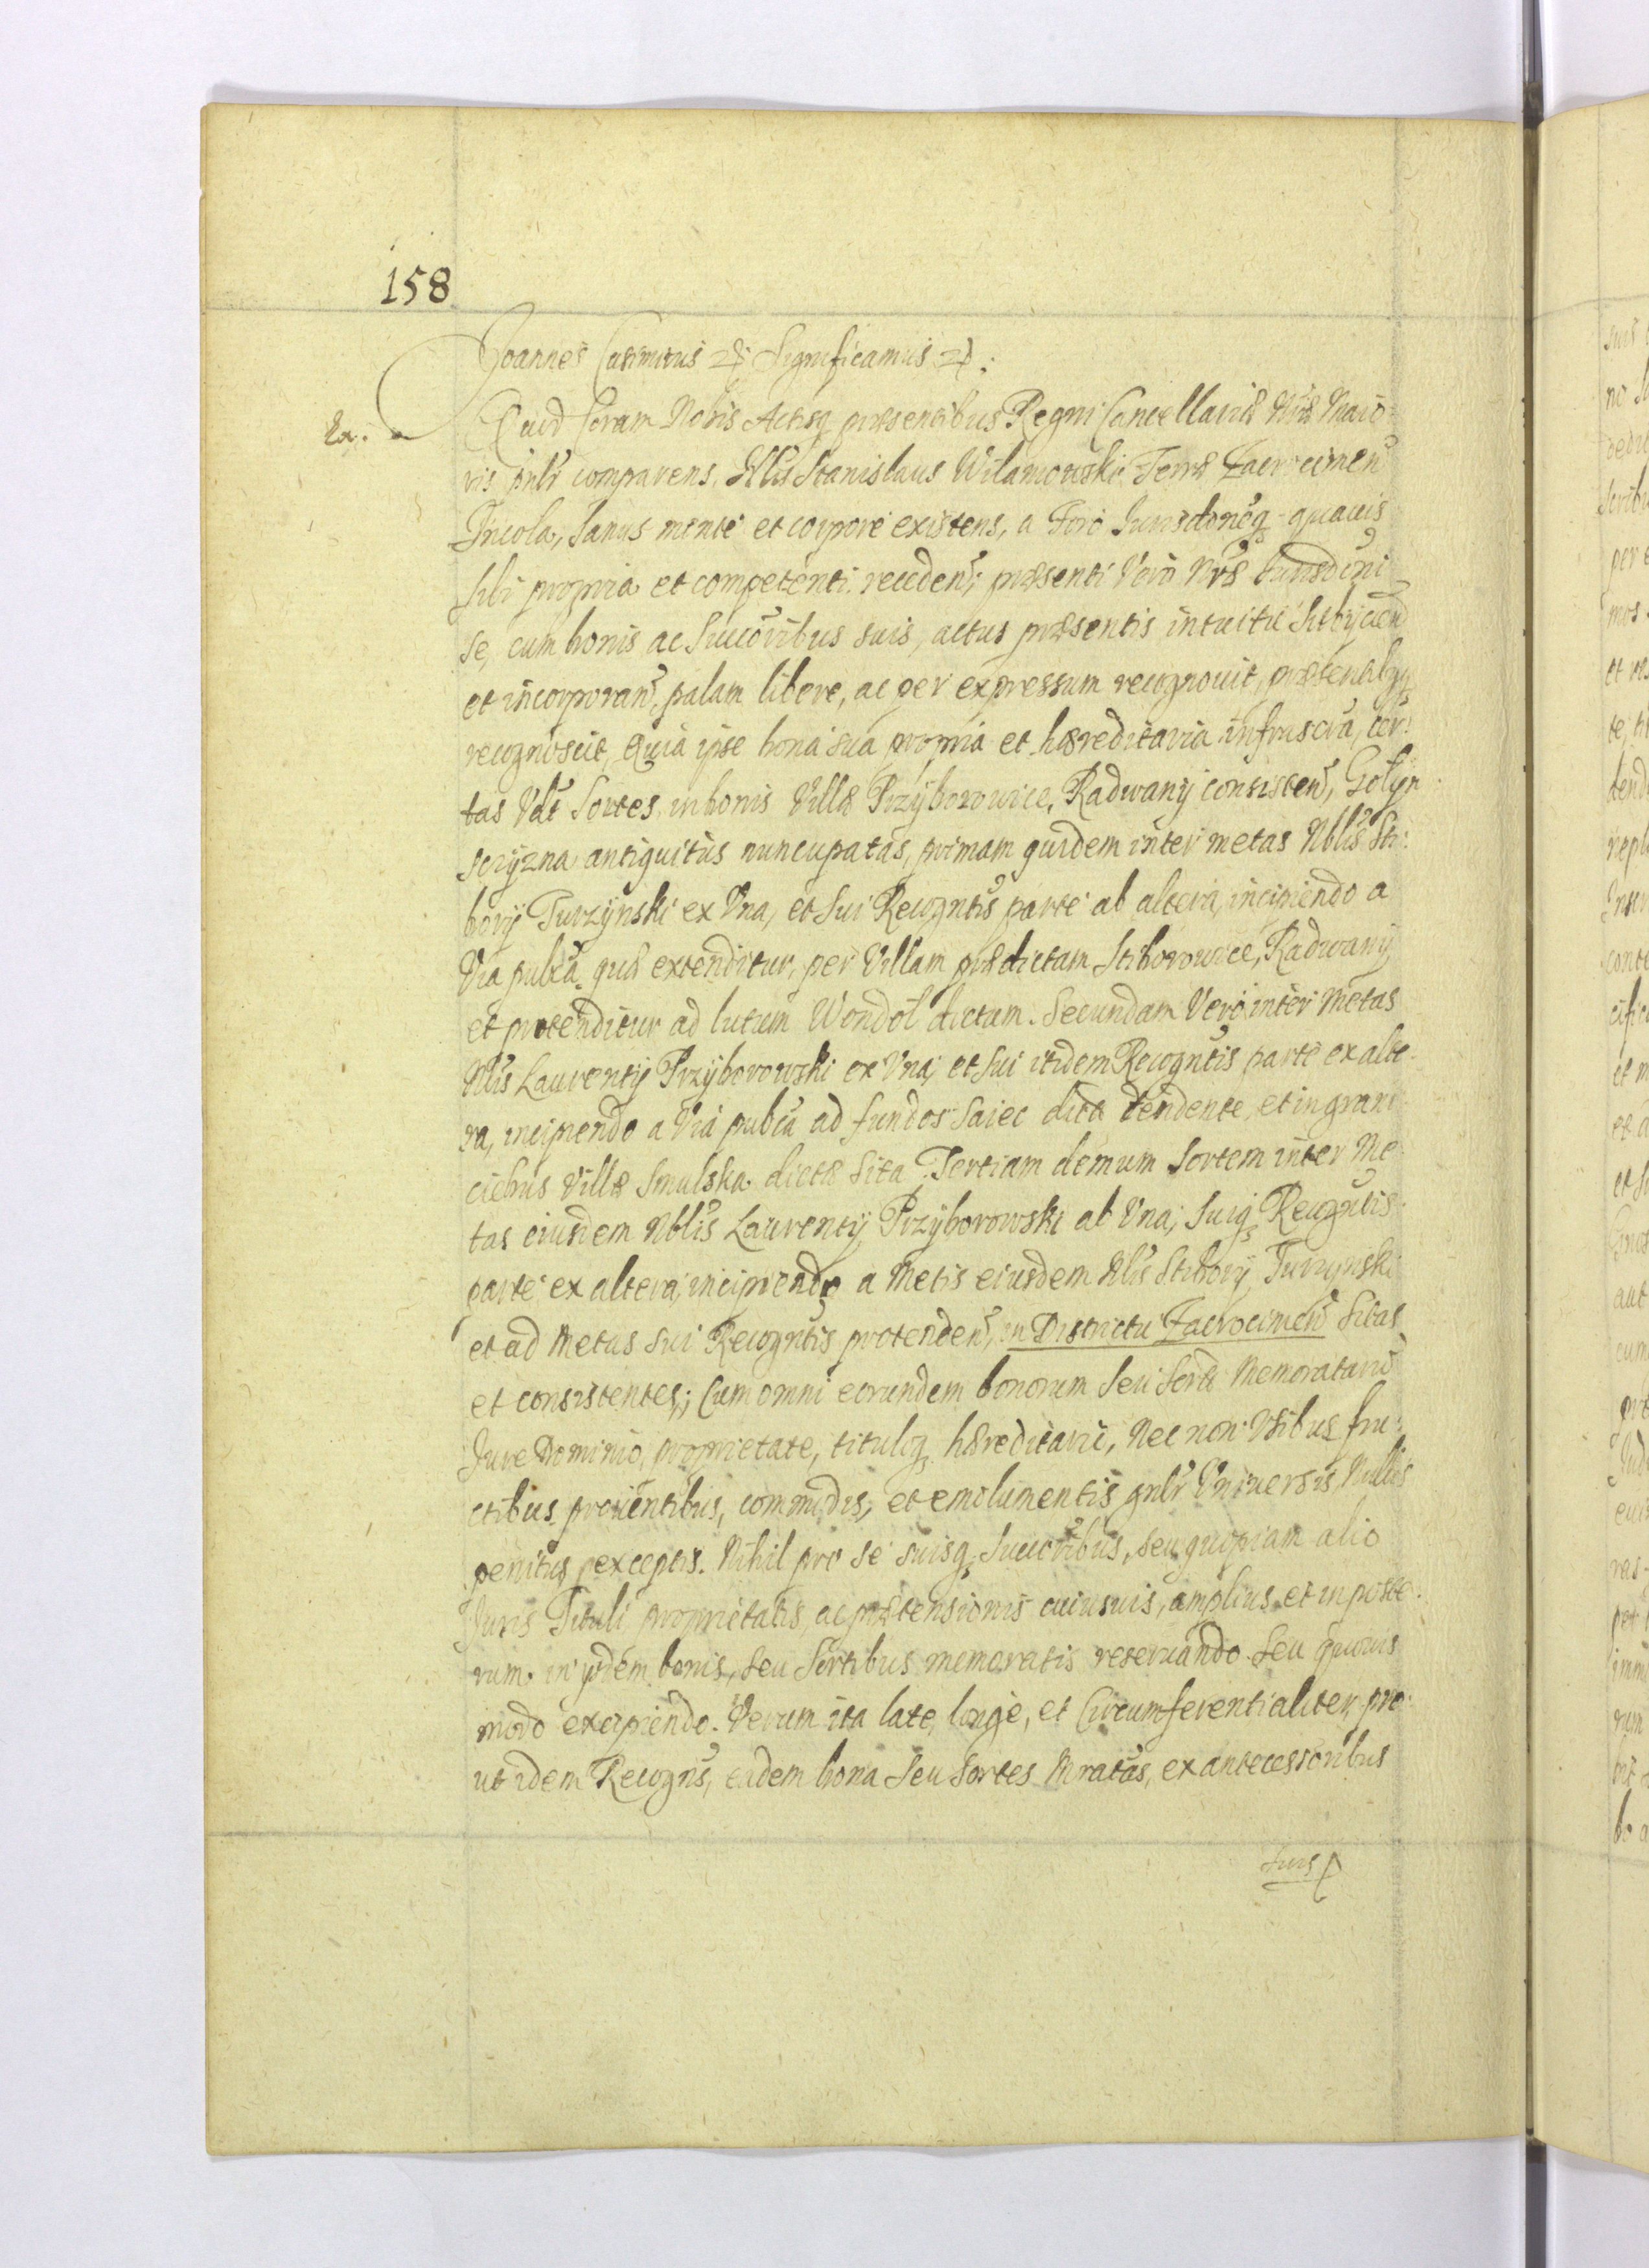 158
Joannes Casimirus Significamus
Ex. Quod Coram Nobis Actisq præsentibus Regni Cancellariæ Nræ Maio-
ris comparens Nblis Stanislaus Wilamowski Terræ Zacrocimen
Incola, sanus mente et corpore existens, a Foro Jurisdoneq quauis
sibi propria et competenti receden; præsenti Vero Nræ Jurisdoni
se, cum bonis ac Succoribus suis, actus præsentis intuitu subijcien
et incorporan, palam libere, ac per expressum recognouit, præsentibq
recognoscit, Quia ipse bona sua propria et hæreditaria infrascra, cer:
tas Vdt Sortes in bonis Villæ Przyborowice, Radwany consisten, Golyn
scijzna antiquitus nuncupatas, primam quidem inter metas Nblis Sti:
borij Turzynski ex Vna, et sui Recogntis parte ab altera, incipiendo a
Via publa quæ extenditur, per Villam prædictam Stiborowice, Radwany
et protenditur ad lutum Wondol dictam. Secundam Vero inter Metas
Nblis Laurentij Przyborowski ex Vna, et sui itidem Recogntis parte ex alte-
ra, incipiendo a Via publca ad fundos Saiec dicta tendente, et in grani-
ciebus Villæ Smulska dictæ sita. Tertiam demum Sortem inter Me-
tas eiusdem Nblis Laurentij Przyborowski ab Vna, suiq Recogntis
parte ex altera, incipiendo a Metis eiusdem Nblis Stiborij Turzynski
et ad Metas sui Recogntis protenden, in Districtu Zacrocimen sitas
et consistentes; Cum omni eorundem bonorum seu Sorti Memoratarum
Jure Dominio, proprietate, tituloq hæreditario, Nec non Vsibus fru:
ctibus prouentibus, commodis, et emolumentis gnlr Vniuersis, Nullis
penitus exceptis. Nihil pro se suisq Succoribus, seu quopiam alio
Juris Tituli proprietatis, ac prætensionis cuiusuis, amplius et in poste-
rum in ijsdem bonis, seu Sortibus memoratis reseruando seu quouis
modo excipiendo. Verum ita late, longe, et Circumferentialiter, pro-
ut idem Recogns, eadem bona seu Sortes Mratas, ex antecessoribus
suis